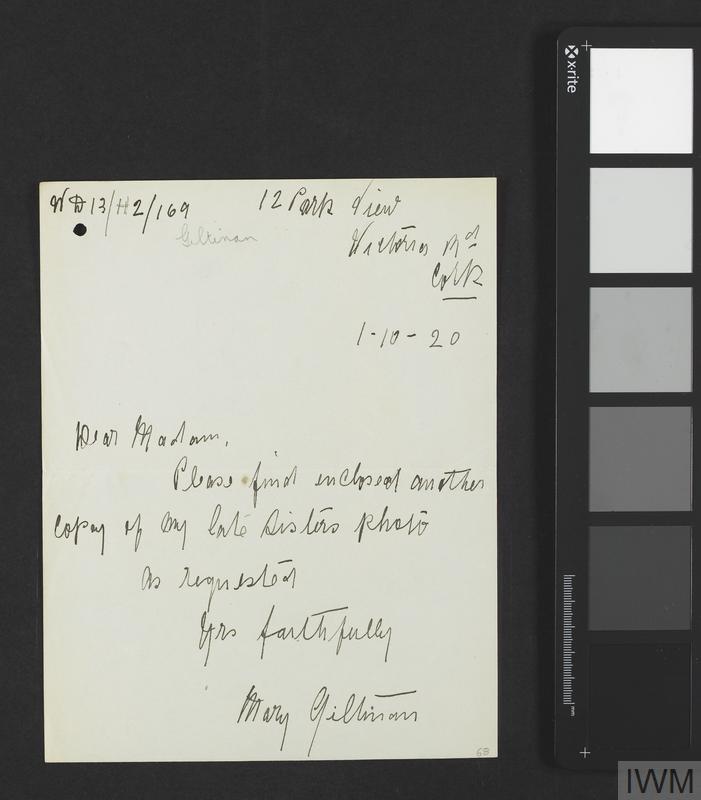 WD 13/H2/169
12 Park View
Giltinan
Victoria Rd
Cork
1-10-20
Dear Madam,
Please find enclosed another
copy of my late Sisters photo
as requested
Yrs faithfully
Mary Giltinan
68
x-rite
mm
IWM